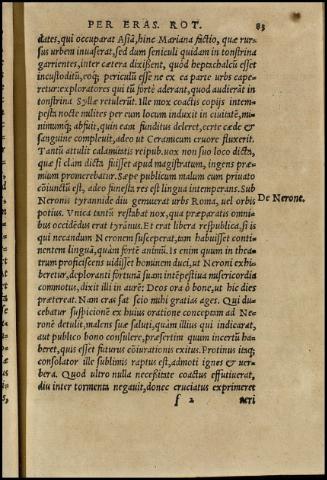 PER ERAS. ROT. 83
dates, qui occuparat Asiã, hinc Mariana factio, quæ rur-
sus urbem inuaserat, sed dum seniculi quidam in tonstrina
garrientes, inter cætera dixißent, quòd heptachalcũ esset
incustoditũ, eoq; periculũ esse ne ex ea parte urbs cape-
retur: exploratores qui tũ fortè aderant, quod audierãt in
tonstrina Syllæ retulerũt. Ille mox coactis copijs intem-
pesta nocte milites per eum locum induxit in ciuitatẽ, mi-
nimumq; abfuit, quin eam funditus deleret, certe cæde &
sanguine compleuit, adeo ut Ceramicum cruore fluxerit.
Tantũ attulit calamitatis reipub. uox non suo loco dicta,
quæ si clam dicta fuisset apud magistratum, ingens præ-
mium promerebatur. Sæpe publicum malum cum priuato
cõiunctũ est, adeo funesta res est lingua intemperans. Sub
Neronis tyrannide diu gemuerat urbs Roma, uel orbis
De Nerone.
potius. Vnica tantũ restabat nox, qua præparatis omni-
bus occidẽdus erat tyrãnus. Et erat libera respublica, si is
qui necandum Neronem susceperat, tam habuisset conti-
nentem linguã, quàm fortẽ animũ. Is enim quum in thea-
trum proficiscens uidisset hominem duci, ut Neroni exhi-
beretur, deploranti fortunã suam intẽpestiua misericordia
commotus, dixit illi in aurẽ: Deos ora ô bone, ut hic dies
prætereat. Nam cras sat scio mihi gratias ages. Qui du-
cebatur suspicionẽ ex huius oratione conceptam ad Ne-
ronẽ detulit, malens suæ saluti, quàm illius qui indicarat,
aut publico bono consulere, præsertim quum incertũ ha-
beret, quis esset futurus cõiurationis exitus. Protinus itaq;
consolator ille sublimis raptus est, admoti ignes & uer-
bera. Quod ultro nulla neceßitate coactus effutiuerat,
diu inter tormenta negauit, donec cruciatus exprimeret
f 2 ueri